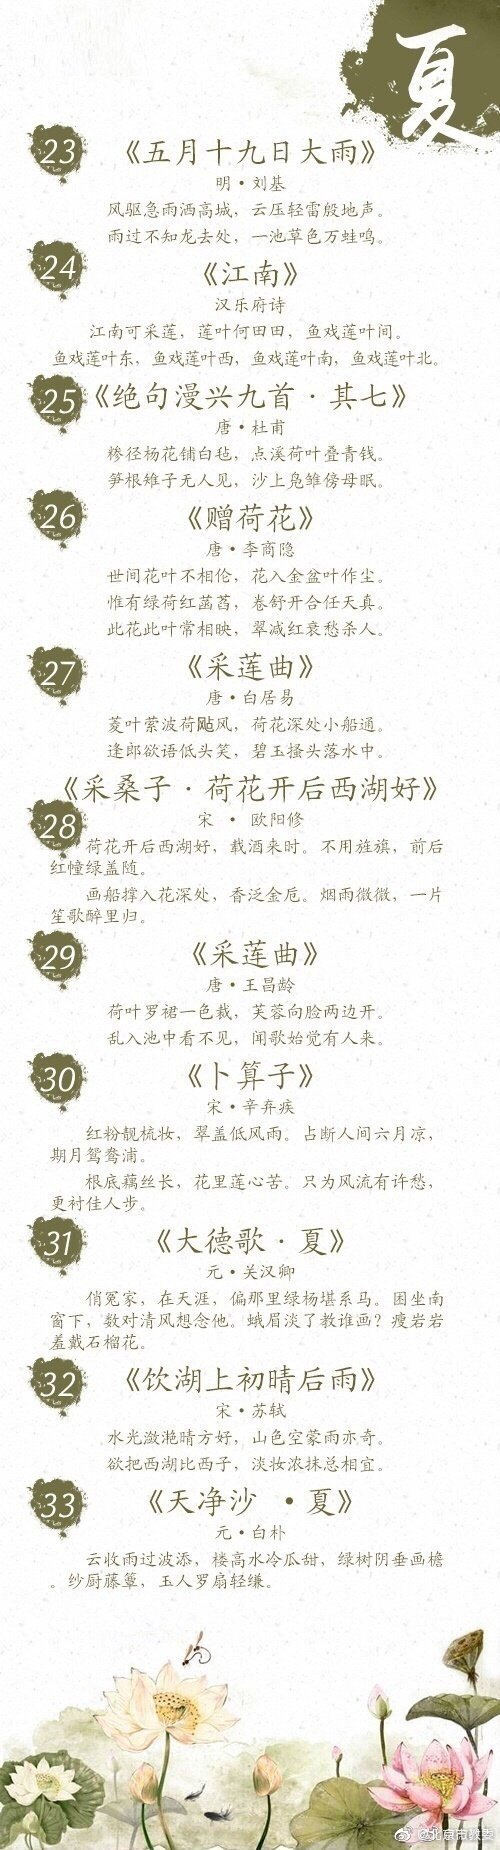 夏
23
《五月十九日大雨》
明·刘基
风驱急雨洒高城，云压轻雷殷地声。
雨过不知龙去处，一池草色万蛙鸣。
24
《江南》
汉乐府诗
江南可采莲，莲叶何田田，鱼戏莲叶间。
鱼戏莲叶东，鱼戏莲叶西，鱼戏莲叶南，鱼戏莲叶北。
25
《绝句漫兴九首·其七》
唐·杜甫
糁径杨花铺白毡，点溪荷叶叠青钱。
笋根雉子无人见，沙上凫雏傍母眠。
26
《赠荷花》
唐·李商隐
世间花叶不相伦，花入金盆叶作尘。
惟有绿荷红菡萏，卷舒开合任天真。
此花此叶常相映，翠减红衰愁杀人。
27
《采莲曲》
唐·白居易
菱叶萦波荷飐风，荷花深处小船通。
逢郎欲语低头笑，碧玉搔头落水中。
《采桑子·荷花开后西湖好》
28
宋 · 欧阳修
荷花开后西湖好，载酒来时。不用旌旗，前后
红幢绿盖随。
画船撑入花深处，香泛金卮。烟雨微微，一片
笙歌醉里归。
29
《采莲曲》
唐·王昌龄
荷叶罗裙一色裁，芙蓉向脸两边开。
乱入池中看不见，闻歌始觉有人来。
30
《卜算子》
宋·辛弃疾
红粉靓梳妆，翠盖低风雨。占断人间六月凉，
期月鸳鸯浦。
根底藕丝长，花里莲心苦。只为风流有许愁，
更衬佳人步。
31
《大德歌·夏》
元·关汉卿
俏冤家，在天涯，偏那里绿杨堪系马。困坐南
窗下，数对清风想念他。蛾眉淡了教谁画？瘦岩岩
羞戴石榴花。
32
《饮湖上初晴后雨》
宋·苏轼
水光潋滟晴方好，山色空蒙雨亦奇。
欲把西湖比西子，淡妆浓抹总相宜。
33
《天净沙 ·夏》
元·白朴
云收雨过波添，楼高水冷瓜甜，绿树阴垂画檐
。纱厨藤簟，玉人罗扇轻缣。
@北京市教委